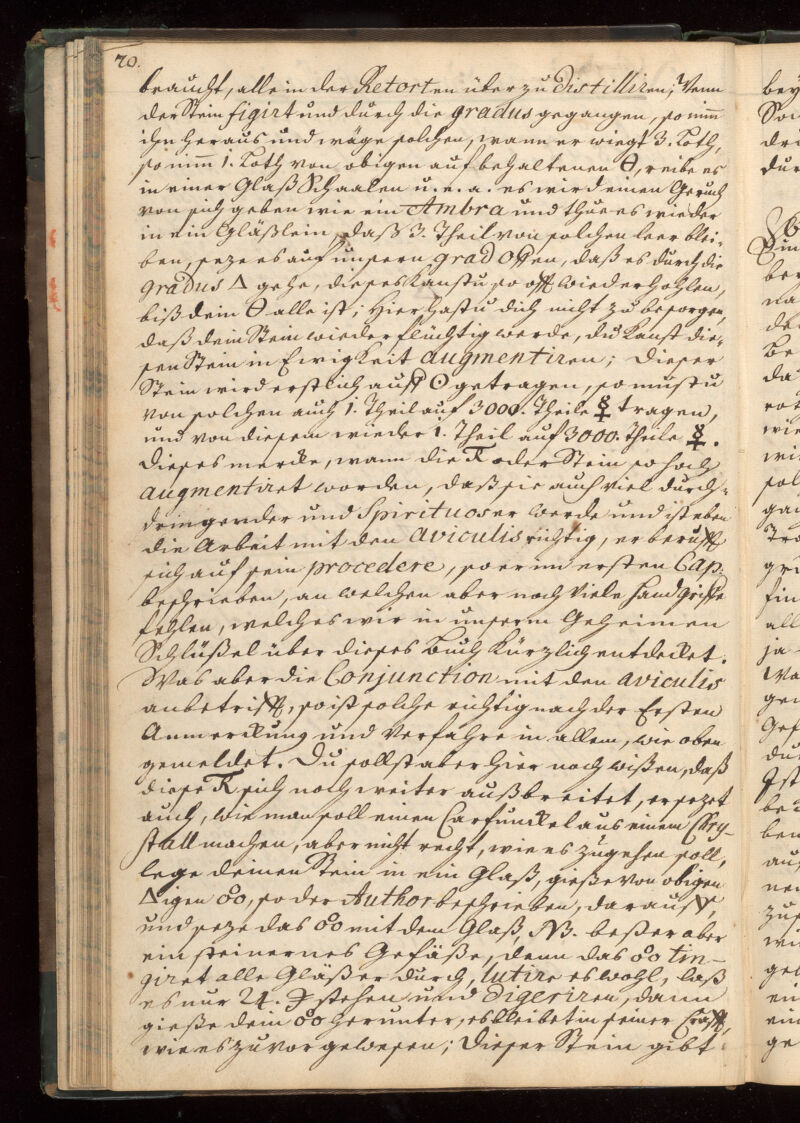 70.
braucht, allein der Retorten über zu Distilliren; Wenn
der Stein figirt und durch die gradus gegangen, so nimm
ihn heraus und wäge solchen, wann er wiegt 3. Loth,
so nimm 1. Loth von obigen aufbehaltenen θ, reibe es
in einer Glaß Schaalen u. e. a. es wird einen Geruch
von sich geben wie ein Ambra und thue es wieder
in ein Gläßlein, daß 3. Theil von solchen leer blei-
ben, seze es auf unsern grad Offen, daß es durch die
gradus △ gehe, dieses kanstu so oft wiederhohlen,
biß dein θ alle ist; Hier hastu dich nicht zu besorgen,
daß dein Stein wieder flüchtig werde, du kanst die-
sen Stein in Ewigkeit augmentiren; Dieser
Stein wird erstlich auf ☉ getragen, so mustu
von solchen auch 1. Theil auf 3000. Theile ☿ tragen,
und von diesem wieder 1. Theil auf 3000. Theile ☿.
Dieses mercke, wann die oder Stein so hoch
augmentiret worden, daß sie auch viel durch-
dringender und Spirituoser werde und ist eben
die Arbeit mit den aviculis richtig, er berufft
sich auf sein procedere, so er im ersten Cap.
beschrieben, an welchen aber noch viele Handgriffe
fehlen, welches wir in unserm Geheimen
Schlüßel über dieses Buch kürzlich entdecket.
Was aber die Conjunction mit den aviculis
anbetrifft, so ist solche richtig nach der Ersten
Anmerckung und Verfahre in allem, wie oben
gemeldet. Du sollst aber hier noch wißen, daß
diese sich noch weiter außbreitet, er sezet
auch, wie man soll einen Carfunckel aus einem Chry-
stall machen, aber nicht recht, wie es zugehen soll,
lege deinen Stein in ein Glaß, gieße von obigen
△igen o°o, so der Author beschrieben, darauff,
und seze das o°o mit dem Glaß, NB. beßer aber
ein steinernes Gefäße, denn das o°o tin-
giret alle Gläßer durch, lutire es wohl, laß
es nur 24. stehen und digeriren, dann
gieße dein o°o herunter, es bleibet in seiner Krafft,
wie es zuvor gewesen; Dieser Stein gibt